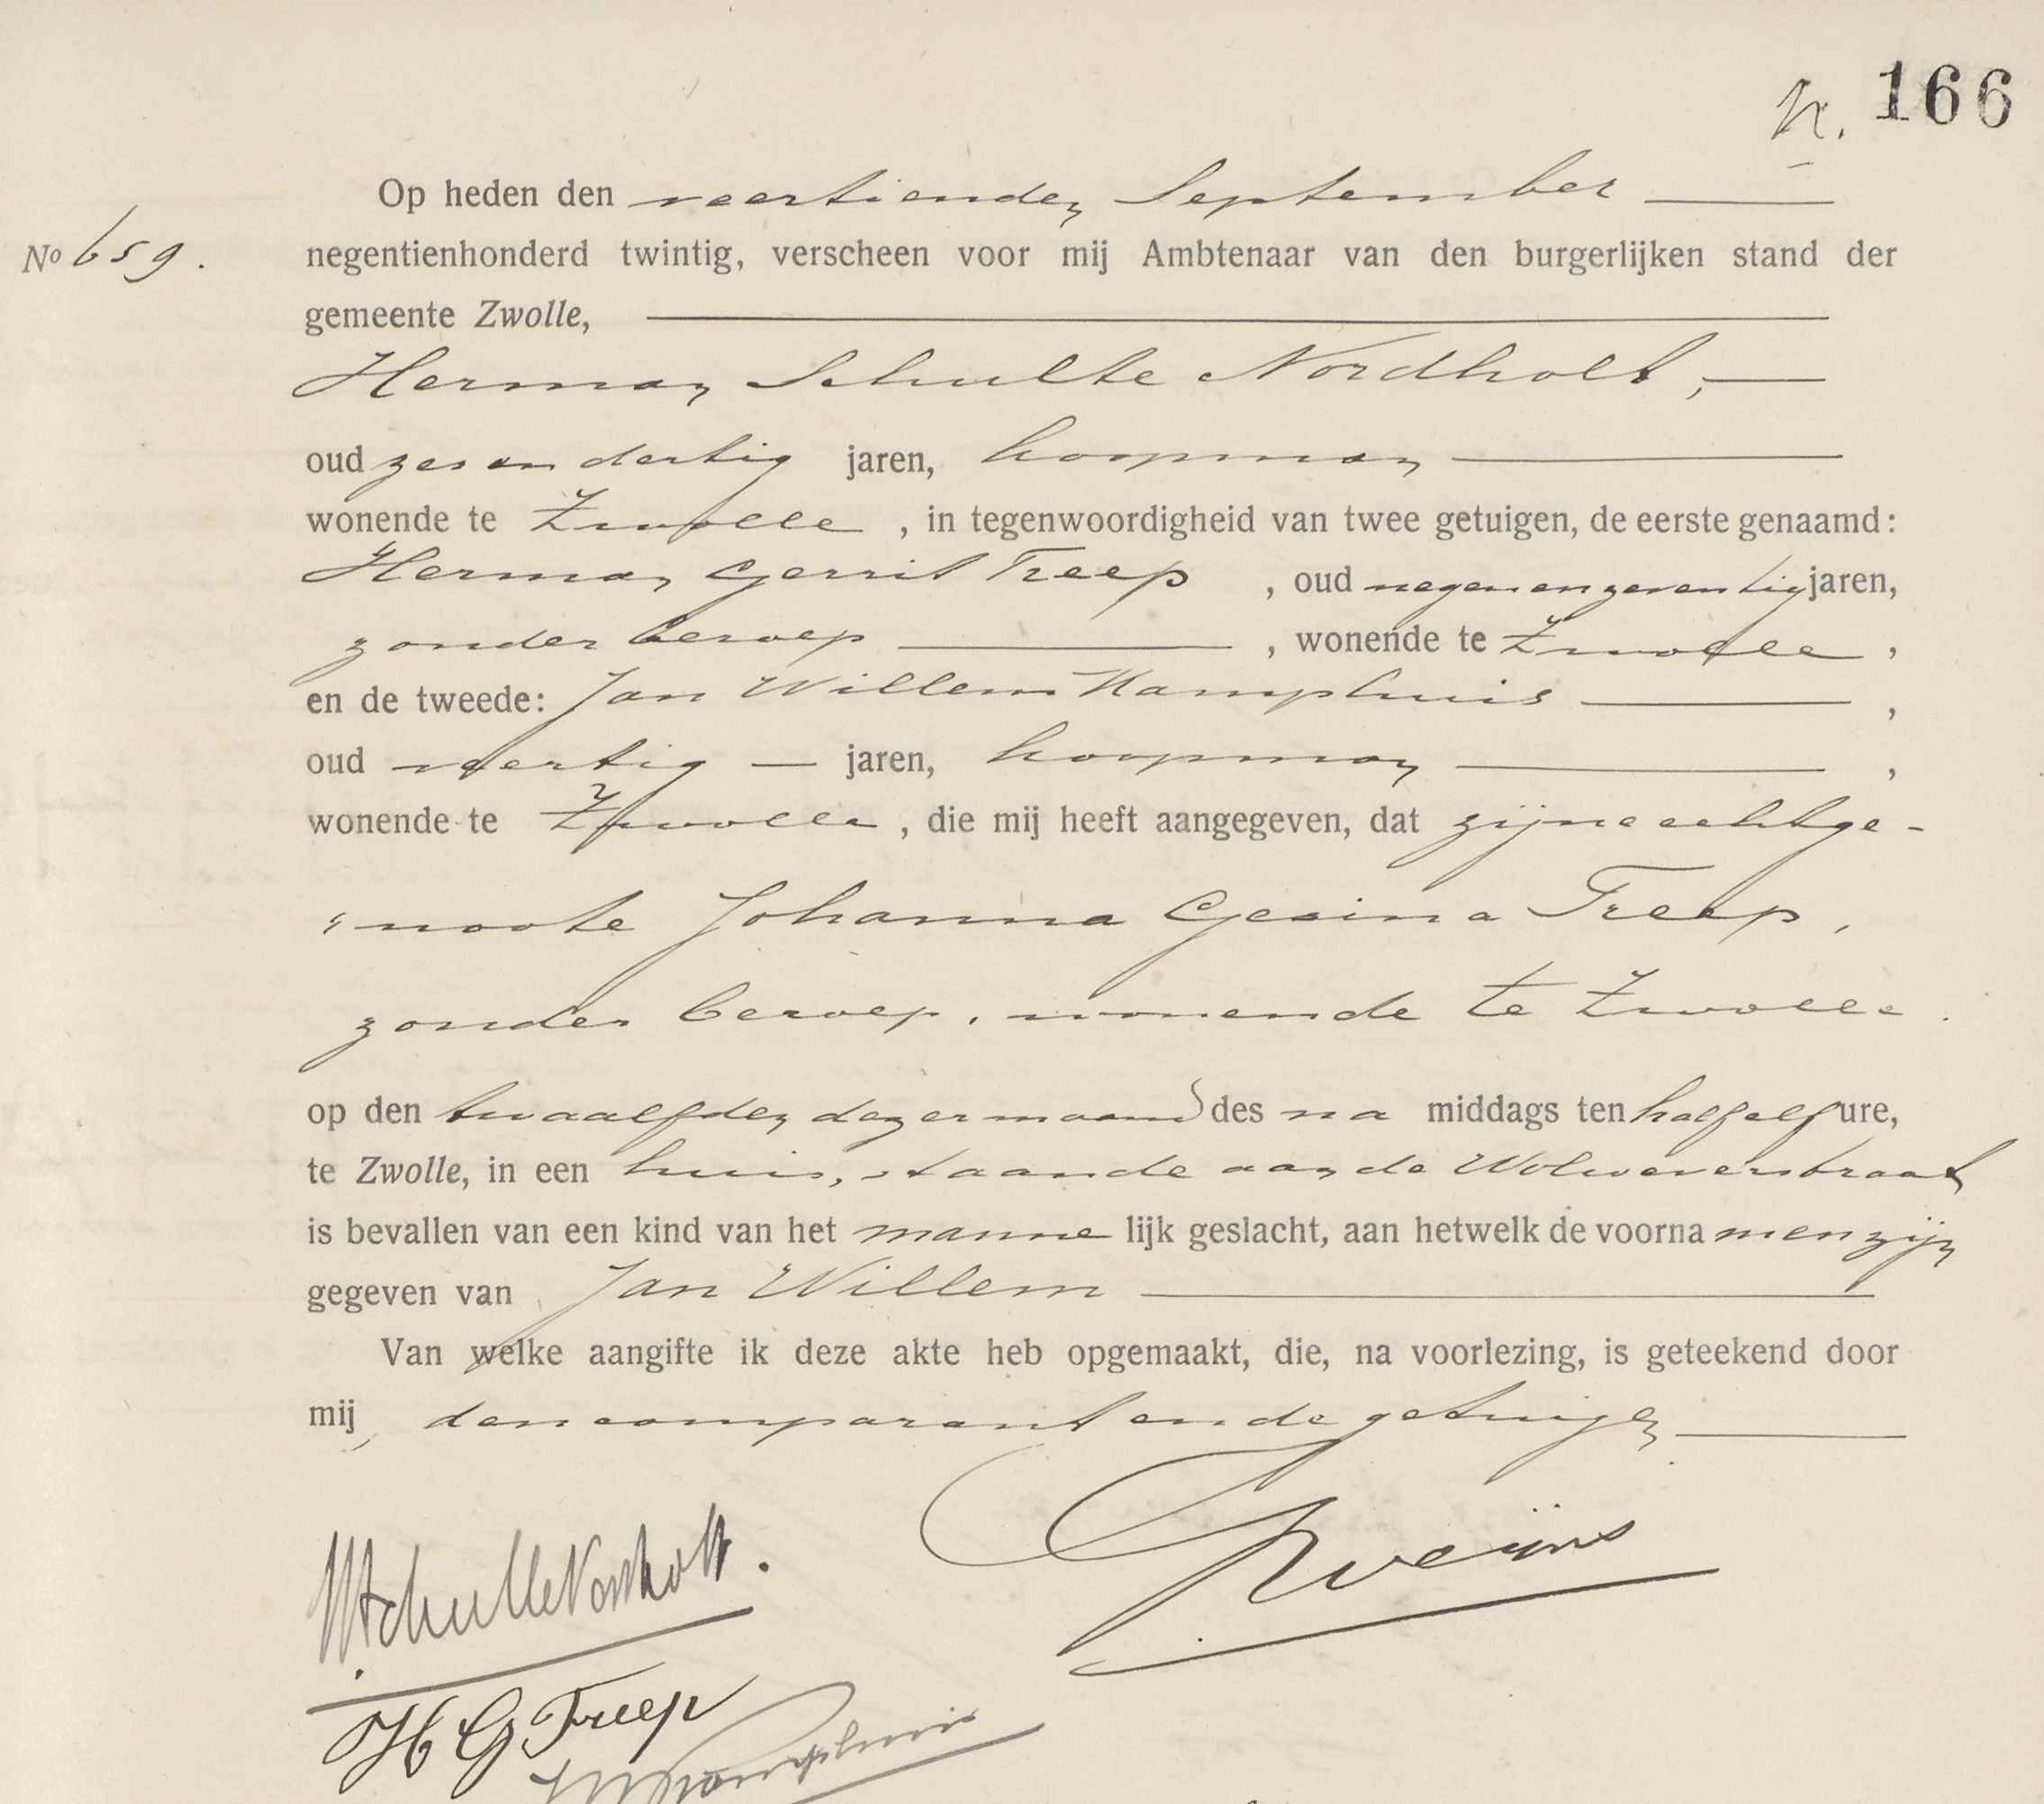 N. 166
Op heden den veertienden September
No 659.
negentienhonderd twintig, verscheen voor mij Ambtenaar van den burgerlijken stand der
gemeente Zwolle,
Herman Schulte Nordholt,
oud zes en dertig jaren, koopman
wonende te Zwolle, in tegenwoordigheid van twee getuigen, de eerste genaamd:
Herman Gerrit Treep, oud negen en zeventig jaren,
zonder beroep, wonende te Zwolle,
en de tweede: Jan Willem Kamphuis,
oud veertig jaren, koopman,
wonende te Zwolle, die mij heeft aangegeven, dat zijne echtge-
"noote Johanna Gesina Treep,
zonder beroep, wonende te Zwolle.
op den twaalfden dezer maand des na middags ten half elf ure,
te Zwolle, in een huis, staande aan de Wolweverstraat
is bevallen van een kind van het manne lijk geslacht, aan hetwelk de voorna men zijn
gegeven van Jan Willem
Van welke aangifte ik deze akte heb opgemaakt, die, na voorlezing, is geteekend door
mij, den comparant en de getuigen
HSchulteNordholt.
H G Treep
JWKamphuis